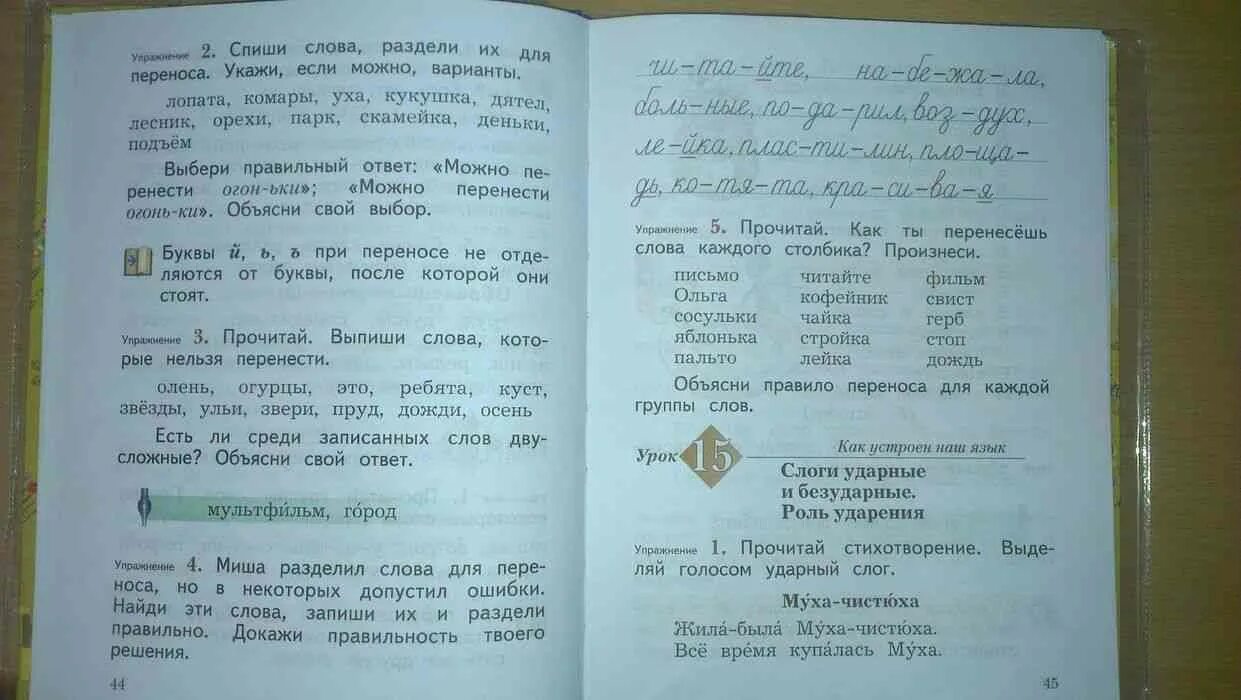 Упражнение 2. Спиши слова, раздели их для
переноса. Укажи, если можно, варианты.
лопата, комары, уха, кукушка, дятел,
лесник, орехи, парк, скамейка, деньки,
подъём
Выбери правильный ответ: «Можно пе-
ренести огон-ьки»; «Можно перенести
огонь-ки». Объясни свой выбор.
Буквы й, ь, ъ при переносе не отде-
ляются от буквы, после которой они
стоят.
Упражнение 3. Прочитай. Выпиши слова, кото-
рые нельзя перенести.
олень, огурцы, это, ребята, куст,
звёзды, ульи, звери, пруд, дожди, осень
Есть ли среди записанных слов дву-
сложные? Объясни свой ответ.
мультфи́льм, го́род
Упражнение 4. Миша разделил слова для пере-
носа, но в некоторых допустил ошибки.
Найди эти слова, запиши их и раздели
правильно. Докажи правильность твоего
решения.
44
чи-та-йте, на-бе-жа-ла,
боль-ные, по-да-рил, воз-дух,
ле-йка, плас-ти-лин, пло-ща-
дь, ко-тя-та, кра-си-ва-я
Упражнение 5. Прочитай. Как ты перенесёшь
слова каждого столбика? Произнеси.
письмо читайте фильм
Ольга кофейник свист
сосульки чайка герб
яблонька стройка стоп
пальто лейка дождь
Объясни правило переноса для каждой
группы слов.
Урок 15 Как устроен наш язык
Слоги ударные
и безударные.
Роль ударения
Упражнение 1. Прочитай стихотворение. Выде-
ляй голосом ударный слог.
Му́ха-чистю́ха
Жила́-была́ Му́ха-чистю́ха.
Всё вре́мя купа́лась Му́ха.
45